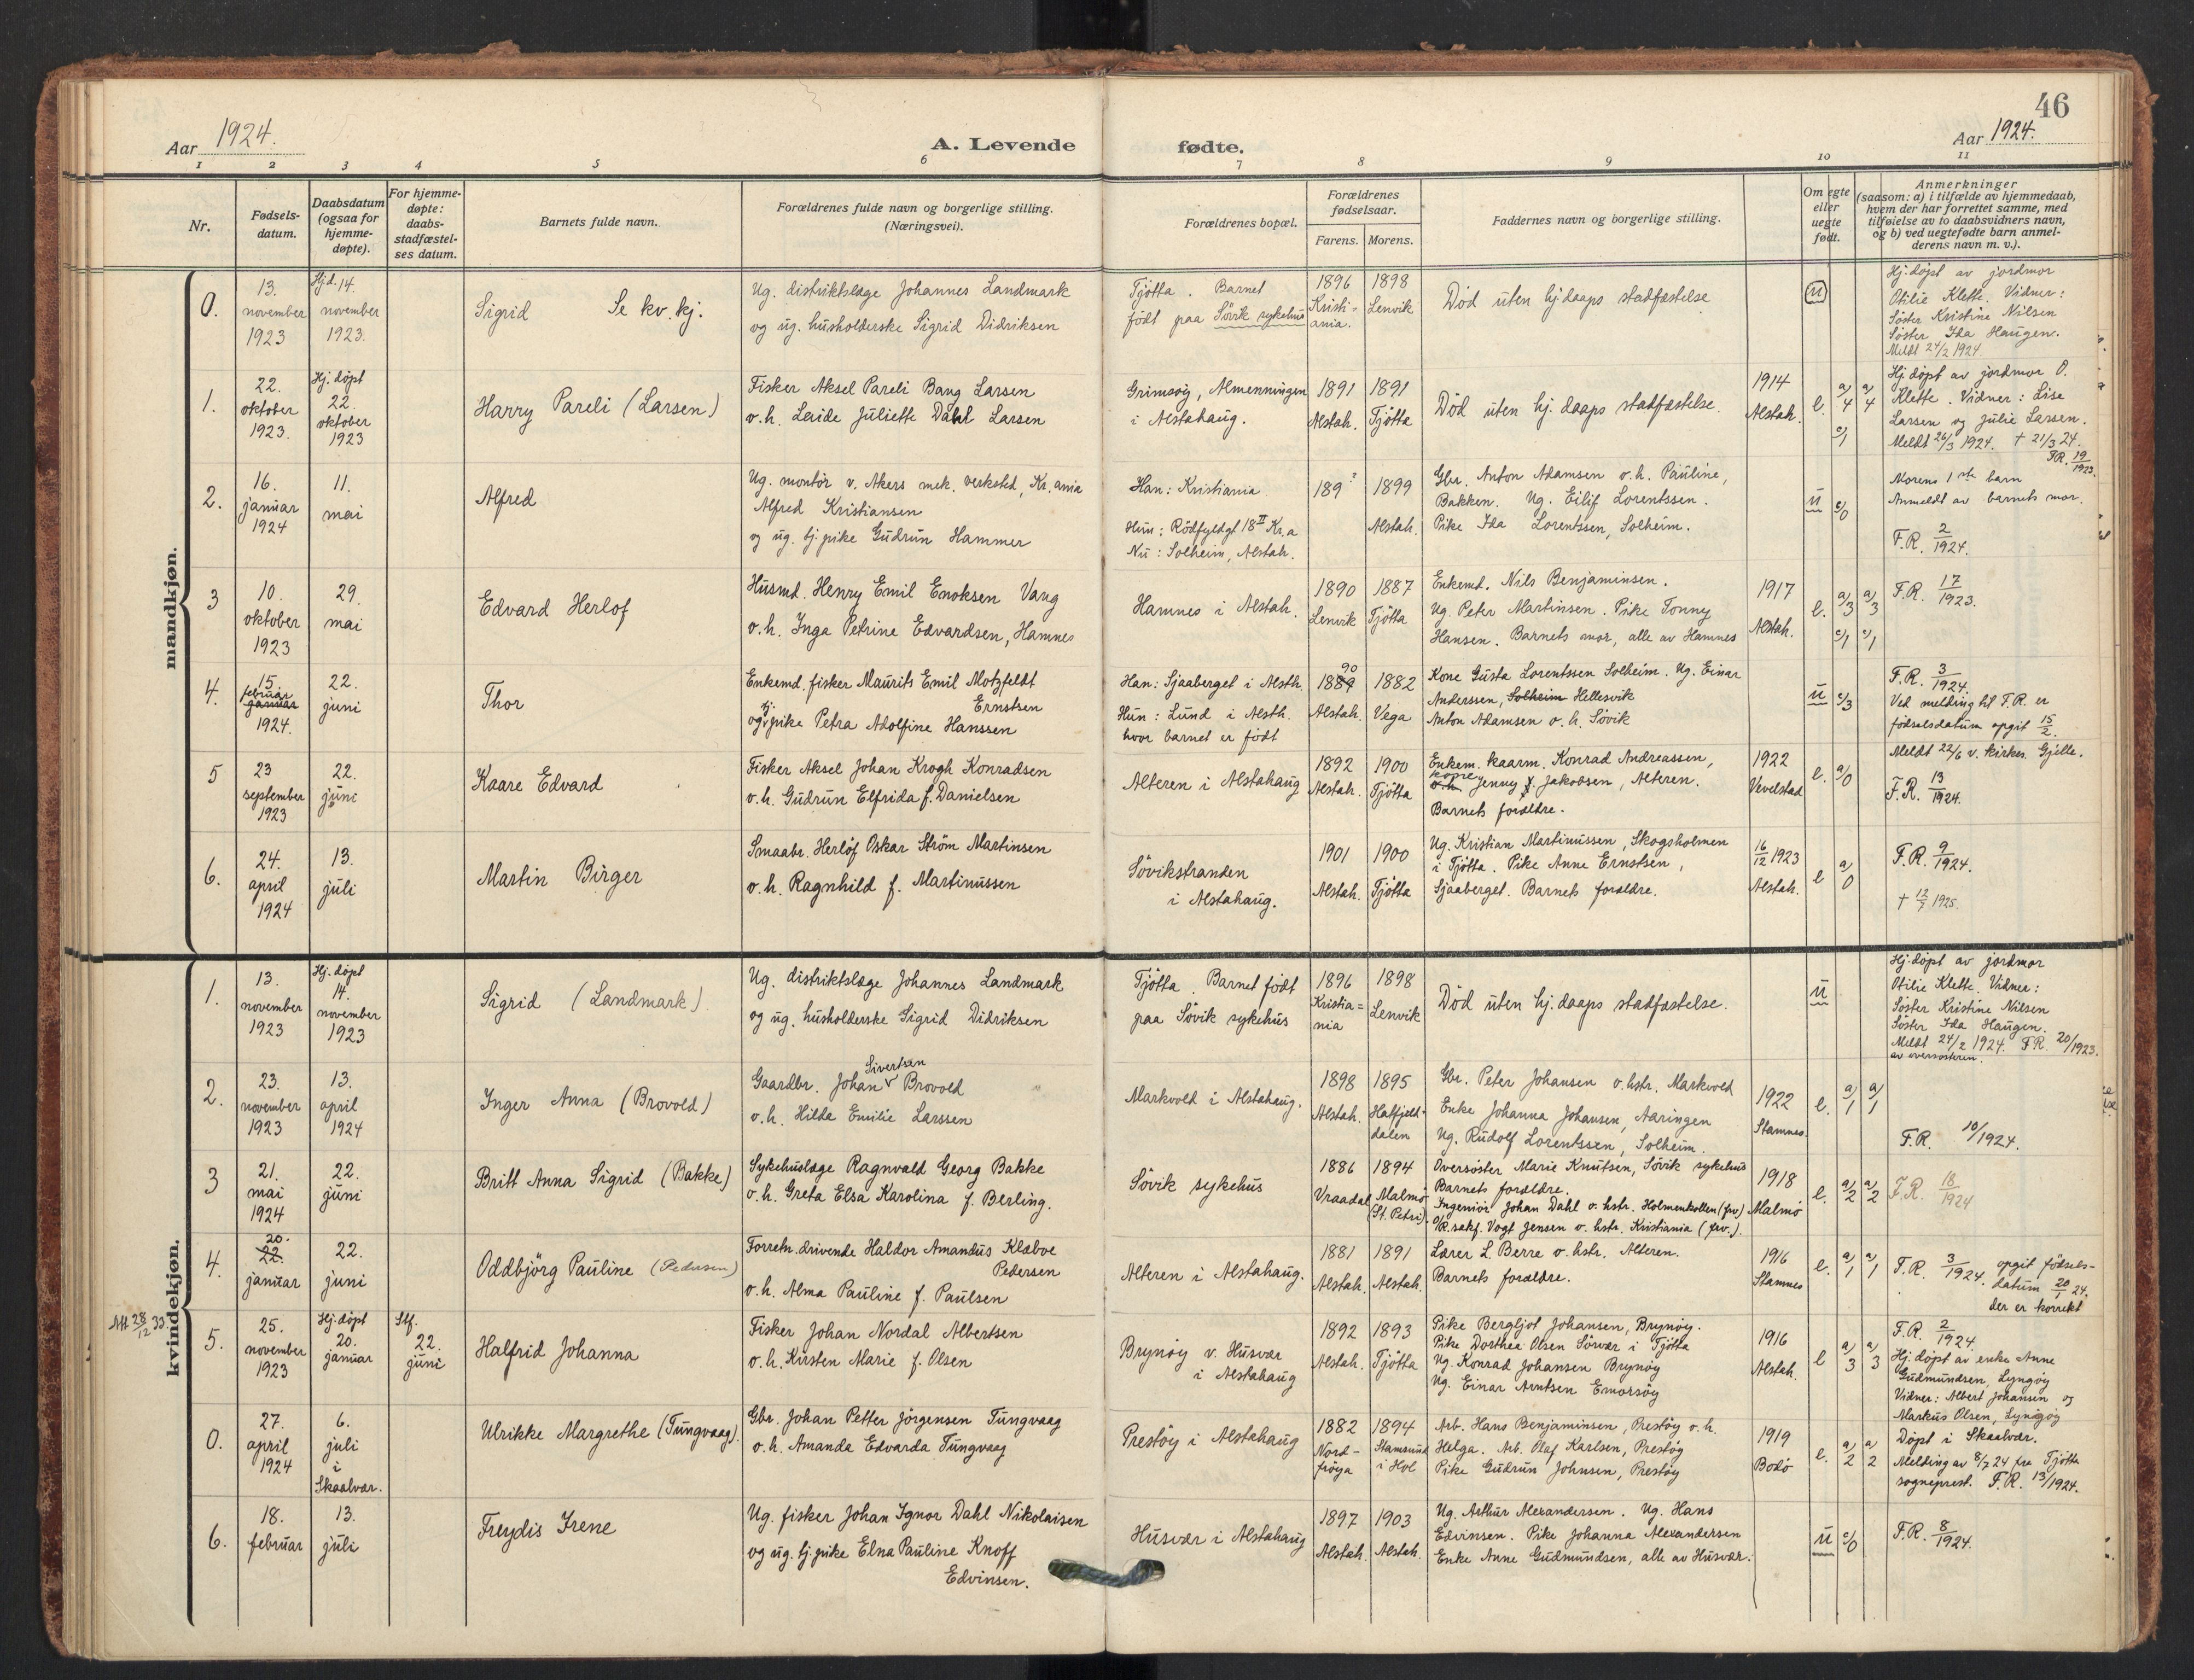 46
Aar 1924.
A. Levende fødte.
Aar 1924.
1 2 3 4 5 6 7 8 9 10 11
Nr.
Fødsels-
datum.
Daabsdatum
(ogsaa for
hjemme-
døpte).
For hjemme-
døpte:
daabs-
stadfæstel-
ses datum.
Barnets fulde navn.
Forældrenes fulde navn og borgerlige stilling.
(Næringsvei).
Forældrenes bopæl.
Forældrenes
fødselsaar.
Farens. Morens.
Faddernes navn og borgerlige stilling.
Om egte
eller
uegte
født.
Anmerkninger
(saasom: a) i tilfælde av hjemmedaab,
hvem der har forrettet samme, med
tilføielse av to daabsvidners navn,
og b) ved uegtefødte barn anmel-
derens navn m. v.).
mandkjøn.
0.
13.
november
1923
Hj.d. 14.
november
1923.
Sigrid Se kv. kj.
Ug. distriktslæge Johannes Landmark
og ug. husholderske Sigrid Didriksen
Tjötta. Barnet
født paa Sövik sykehus
1896
Kristi-
ania.
1898
Lenvik
Död uten hj.daaps stadfæstelse
u
Hj.döpt av jordmor
Otilie Klette. Vidner:
Söster Kristine Nilsen
Söster Ida Haugen.
Meldt 24/2 1924.
1.
22.
oktober
1923.
Hj.döpt
22.
oktober
1923
Harry Pareli (Larsen)
Fisker Aksel Pareli Bang Larsen
o.h. Leide Juliette Dahl Larsen
Grimsöy, Almenningen
i Alstahaug.
1891
Alstah.
1891
Tjötta
Död uten hj. daaps stadfæstelse.
1914
Alstah.
e.
a/4 a/4
c/1
Hj.döpt av jordmor O.
Klette. Vidner: Lise
Larsen og Julie Larsen.
Meldt 26/3 1924. † 21/3 24.
F.R. 19/1923.
2.
16.
januar
1924
11.
mai
Alfred
Ug. montör v. Akers mek. verksted, Kr.ania
Alfred Kristiansen
og ug. tj.pike Gudrun Hammer
Han: Kristiania
Hun: Rödfyldgt 18 II Kr.a
Nu: Solheim, Alstah.
189?
1899
Alstah.
Gbr. Anton Adamsen o.h. Pauline,
Bakken. Ug. Eilif Lorentssen.
Pike Ida Lorentssen, Solheim.
u
c/0
Morens 1ste barn
Anmeldt av barnets mor.
F.R. 2/1924.
3
10.
oktober
1923
29.
mai
Edvard Herlof
Husmd. Henry Emil Enoksen Vang
o.h. Inga Petrine Edvardsen, Hamnes
Hamnes i Alstah.
1890
Lenvik
1887
Tjötta
Enkemd. Nils Benjaminsen.
Ug. Peter Martinsen. Pike Tonny
Hansen. Barnets mor, alle av Hamnes
1917
Alstah.
e.
a/3 a/3
c/1 c/1
F.R. 17/1923.
4.
15.
februar
januar
1924.
22.
juni
Thor
Enkemd. fisker Maurits Emil Motzfeldt
Ernstsen
og tj.pike Petra Adolfine Hanssen
Han: Sjaaberget i Alsth.
Hun: Lund i Alsth.
hvor barnet er födt
90
1889
Alstah.
1882
Vega
Kone Gusta Lorentssen Solheim. Ug. Einar
Anderssen, Solheim Hellesvik
Anton Adamsen o.h. Sövik
u
c/3
F.R. 3/1924.
Ved melding til F.R. er
födselsdatum opgit 15/2.
5
23
september
1923
22.
juni
Kaare Edvard
Fisker Aksel Johan Krogh Konradsen
o.h. Gudrun Elfrida f. Danielsen
Alteren i Alstahaug
1892
Alstah.
1900
Tjötta
Enkem. kaarm. Konrad Andreassen,
kone
o.h. Jenny f. Jakobsen, Alteren.
Barnets forældre.
1922
Vevelstad
e.
a/0
Meldt 22/6 v. kirkes. Gjelle.
F.R. 13/1924.
6.
24.
april
1924
13.
juli
Martin Birger
Smaabr. Herlöf Oskar Ström Martinsen
o.h. Ragnhild f. Martinussen
Sövikstranden
i Alstahaug.
1901
Alstah.
1900
Tjötta
Ug. Kristian Martinussen, Skogsholmen
i Tjötta. Pike Anne Ernstsen,
Sjaaberget. Barnets forældre.
16/12 1923
Alstah.
e
a/0
F.R. 9/1924.
† 12/7 1925.
kvindekjøn.
1.
13.
november
1923
Hj.döpt
14.
november
1923
Sigrid (Landmark)
Ug. distriktslæge Johannes Landmark
og ug. husholderske Sigrid Didriksen
Tjötta. Barnet födt
paa Sövik sykehus
1896
Kristia-
nia
1898
Lenvik
Död uten hj.daaps stadfæstelse.
u
Hj.döpt av jordmor
Otilie Klette. Vidner:
Söster Kristine Nilsen
Söster Ida Haugen.
Meldt 24/2 1924. F.R. 20/1923.
av oversösteren.
2.
23.
november
1923
13.
april
1924
Inger Anna (Brovold)
Sivertsen
Gaardbr. Johan Brovold
o.h. Hilda Emilie Larssen
Markvold i Alstahaug.
1898
Alstah.
1895
Hatfjeld-
dalen
Gbr. Peter Johansen o.hstr. Markvold
Enke Johanna Johansen, Aaringen
Ug. Rudolf Lorentssen, Solheim.
1922
Stamnes.
e.
a/1 a/1
F.R. 10/1924.
3
21.
mai
1924
22.
juni
Britt Anna Sigrid (Bakke)
Sykehuslæge Ragnvald Georg Bakke
o.h. Greta Elsa Karolina f. Berling.
Sövik sykehus
1886
Vraadal
1894
Malmö
(St. Petri)
Oversöster Marie Knutsen, Sövik sykehus
Barnets forældre.
Ingeniör Johan Dahl o. hstr. Holmenkollen (frv)
O/R.sakf. Vogt Jensen o. hstr. Kristiania (frv.).
1918
Malmö
e.
a/2 a/2
F.R. 18/1924
4.
20.
22.
januar
22.
juni
Oddbjörg Pauline (Pedersen)
Forretn.drivende Haldor Amandus Klæboe
Pedersen
o.h. Alma Pauline f. Paulsen
Alteren i Alstahaug.
1881
Alstah.
1891
Alstah.
Lærer L. Berre o. hstr. Alteren.
Barnets forældre.
1916
Stamnes
e.
a/1 a/1
F.R. 3/1924. opgit födsels-
datum 20/1 24.
der er korrekt
28/12 33.
5.
25.
november
1923
Hj.döpt
20.
januar
Stf.
22.
juni
Halfrid Johanna
Fisker Johan Nordal Albertsen
o.h. Kirsten Marie f. Olsen
Brynöy v. Husvær
i Alstahaug
1892
Alstah.
1893
Tjötta
Pike Bergljot Johansen, Brynöy.
Pike Dorthea Olsen Sörvær i Tjötta
Ug. Konrad Johansen Brynöy
Ug. Einar Arntsen Emorsöy
1916
Alstah.
e
a/3 a/3
F.R. 2/1924.
Hj.döpt av enke Anne
Gudmundsen, Lyngöy
Vidner: Albert Johansen og
Markus Olsen, Lyngöy
0.
27.
april
1924
6.
juli
i
Skaalvær.
Ulrikke Margrethe (Tungvaag).
Gbr. Johan Petter Jörgensen Tungvaag
o.h. Amanda Edvarda Tungvaag
Prestöy i Alstahaug
1882
Nord-
fröya
1894
Stamsund
i Hol
Arb. Hans Benjaminsen, Prestöy o.h.
Helga. Arb. Olaf Karlsen, Prestöy
Pike Gudrun Johnsen, Prestöy
1919
Bodö
e.
a/2 a/2
Döpt i Skaalvær.
Melding av 8/7 24 fra Tjötta
sogneprest. F.R. 13/1924.
6.
18.
februar
13.
juli
Freydis Irene
Ug. fisker Johan Ignor Dahl Nikolaisen
og ug. tj.pike Elna Pauline Knoff
Edvinsen.
Husvær i Alstahaug
1897
Alstah.
1903
Alstah.
Ug. Arthur Alexandersen. Ug. Hans
Edvinsen. Pike Johanna Alexandersen
Enke Anne Gudmundsen, alle av Husvær.
u
c/0
F.R. 8/1924.